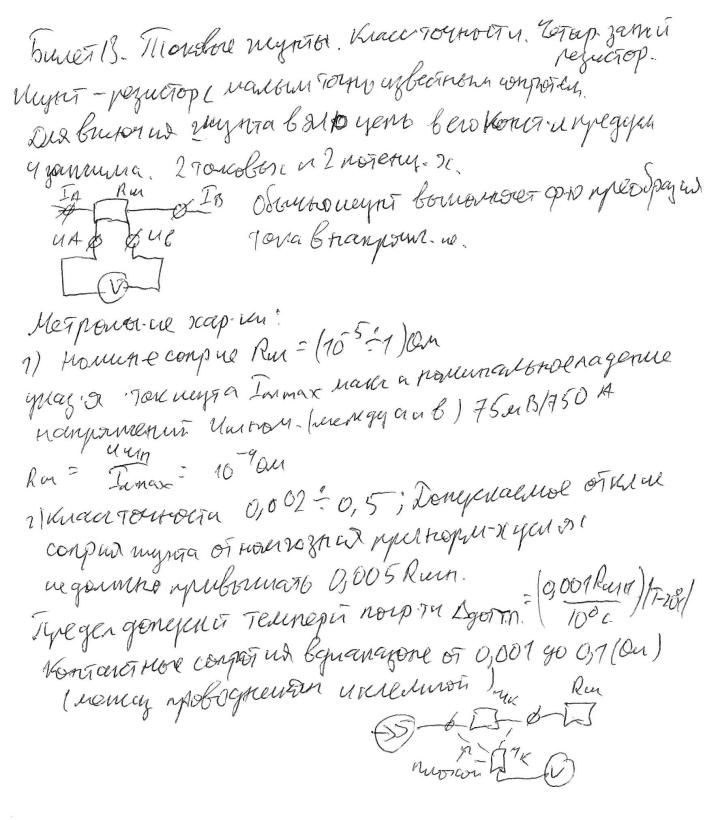 Билет 13. Токовые шунты. Класс точности. Четыр. зажи
резистор.
Шунт – резистор с малым точно известным сопротом.
Для включ-ия шунта в эл цепь в его конст-и предусм
4 зажима. 2 токовых и 2 потенц-х.
IA Rш IB Обычно шунт выполняет ф-ю преобраз-ия
UA UB тока в напряж-ие.
V
Метролог-ие хар-ки:
1) Номин-е сопр-ие Rш = (10⁻⁵ ÷ 1) Ом
указ-я ток шунта Iшmax макс и номинальное падение
напряжений Uшном. (между a и в) 75 мВ/750 А
Rш = Uшп/Iшmax = 10⁻⁴ Ом
2) Класс точности 0,002 ÷ 0,5; Допускаемое откл-ие
сопр-ия шунта от ном знач-ия при норм-х усл-ях
не должно привышать 0,005 Rшп.
Предел допуск-й темпер-й погр-ти Δдоп.т.п. = (0,001Rшп/10°C)|T-20°C|
Контактные сопрот-ия в диапазоне от 0,001 до 0,1 (Ом)
(между проводником и клеммой)
чк Rш
чк
плохой V